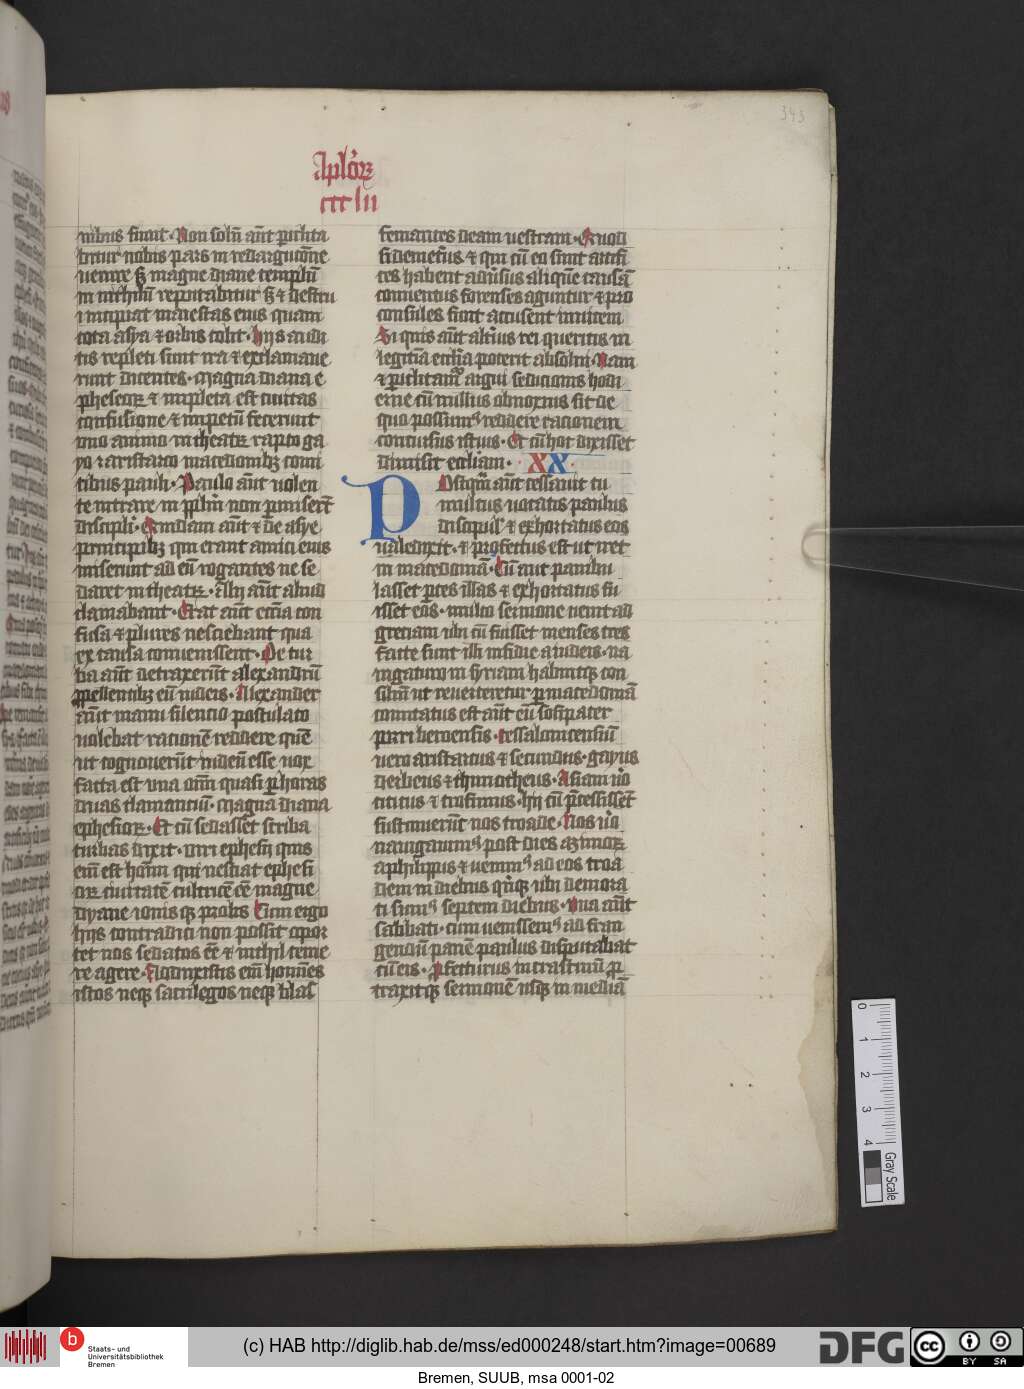 343
Aplōꝝ
ccclii
nibus fiunt. Non solū aūt piclita
bitur nobis pars in redarguicōne
venire sꝫ magne diane templū
in nichilū reputabitur sꝫ ⁊ destru
i incipiat maiestas eius quam
tota asya ⁊ orbis colit. Hijs audi
tis repleti sunt ira ⁊ exclamaue
runt dicentes. Magna diana e
phesioꝝ ⁊ impleta est ciuitas
confusione ⁊ impetū fecerunt
vno animo in theatꝝ rapto ga
yo ⁊ aristarco macedonibꝫ comi
tibus pauli. Paulo aūt volen
te intrare in pplm̄ non permiserūt
discipli. Quidam aūt ⁊ de asye
principibꝫ qui erant amici eius
miserunt ad eū rogantes ne se
daret in theatꝝ. Alij aūt aliud
clamabant. Erat aūt ecc̄ia con
fusa ⁊ plures nesciebant qua
ex causa conuenissent. De tur
ba aūt detraxerūt alexandrū
ꝓpellentibꝫ eū iudeis. Alexander
aūt manu silencio postulato
volebat racionē reddere quē
ut cognouerūt iudeū esse vox
facta est vna om̄ quasi p horas
duas clamantiū. Magna diana
ephesioꝝ. Et cū sedasset scriba
turbas dixit. viri ephesij quis
eīm est hoīm qui nesciat ephesi
oꝝ ciuitatē cultricē eē magne
dyane iouisqꝫ prolis Cum ergo
hijs contradici non possit opor
tet nos sedatos eē ⁊ nichil teme
re agere. Adduxistis eīm homines
istos neqꝫ sacrilegos neqꝫ blas
femantes deam vestram. Quod
si demetrius ⁊ qui cū eo sunt artifi
ces habent aduersus aliquē causā
conuentus forenses aguntur ⁊ pro
consules sunt accusent inuicem
Si quis aūt alterius rei queritis in
legitīa ecclīa poterit absolui. Nam
⁊ piclitamur argui sedicionis hodi
erne cū nullus obnoxius sit de
quo possimꝰ reddere racionem
concursus istius. Et cū hoc dixisset
dimisit eccliam. XX
Postqm̄ aūt cessauit tu
multus vocatis paulus
discipulis ⁊ exhortatus eos
valedixit. ⁊ profectus est ut iret
in macedoniā. Cū aut pambu
lasset ptes illas ⁊ exhortatus fu
isset eos. multo sermone venit ad
greciam ubi cū fuisset menses tres
facte sunt illi insidie a iudeis. na
uigaturo in syriam habuitqꝫ con
siliū ut reuerteretur p macedoniā
comitatus est aūt eū sosipater
pirri beroensis. tessalonicensiū
vero aristarcus ⁊ secundus. gayus
derbeus ⁊ thimotheus. Asiani ūo
titicus ⁊ trofimus. hij cū p̄cessissēt
sustinuerūt nos troade. Nos ūo
nauigauimꝰ post dies azimoꝝ
a philippis ⁊ venimꝰ ad eos troa
dem in diebus qn̄qꝫ ubi demora
ti sumꝰ septem diebus. Vna aūt
sabbati. cum venissemꝰ ad fran
gendū panē paulus disputabat
cū eis. ꝓfecturus in crastinū ꝓ
traxitqꝫ sermonē usqꝫ in mediā
0 1 2 3 4
Gray Scale
Staats- und
Universitätsbibliothek
Bremen
(c) HAB http://diglib.hab.de/mss/ed000248/start.htm?image=00689
DFG
cc BY SA
Bremen, SUUB, msa 0001-02